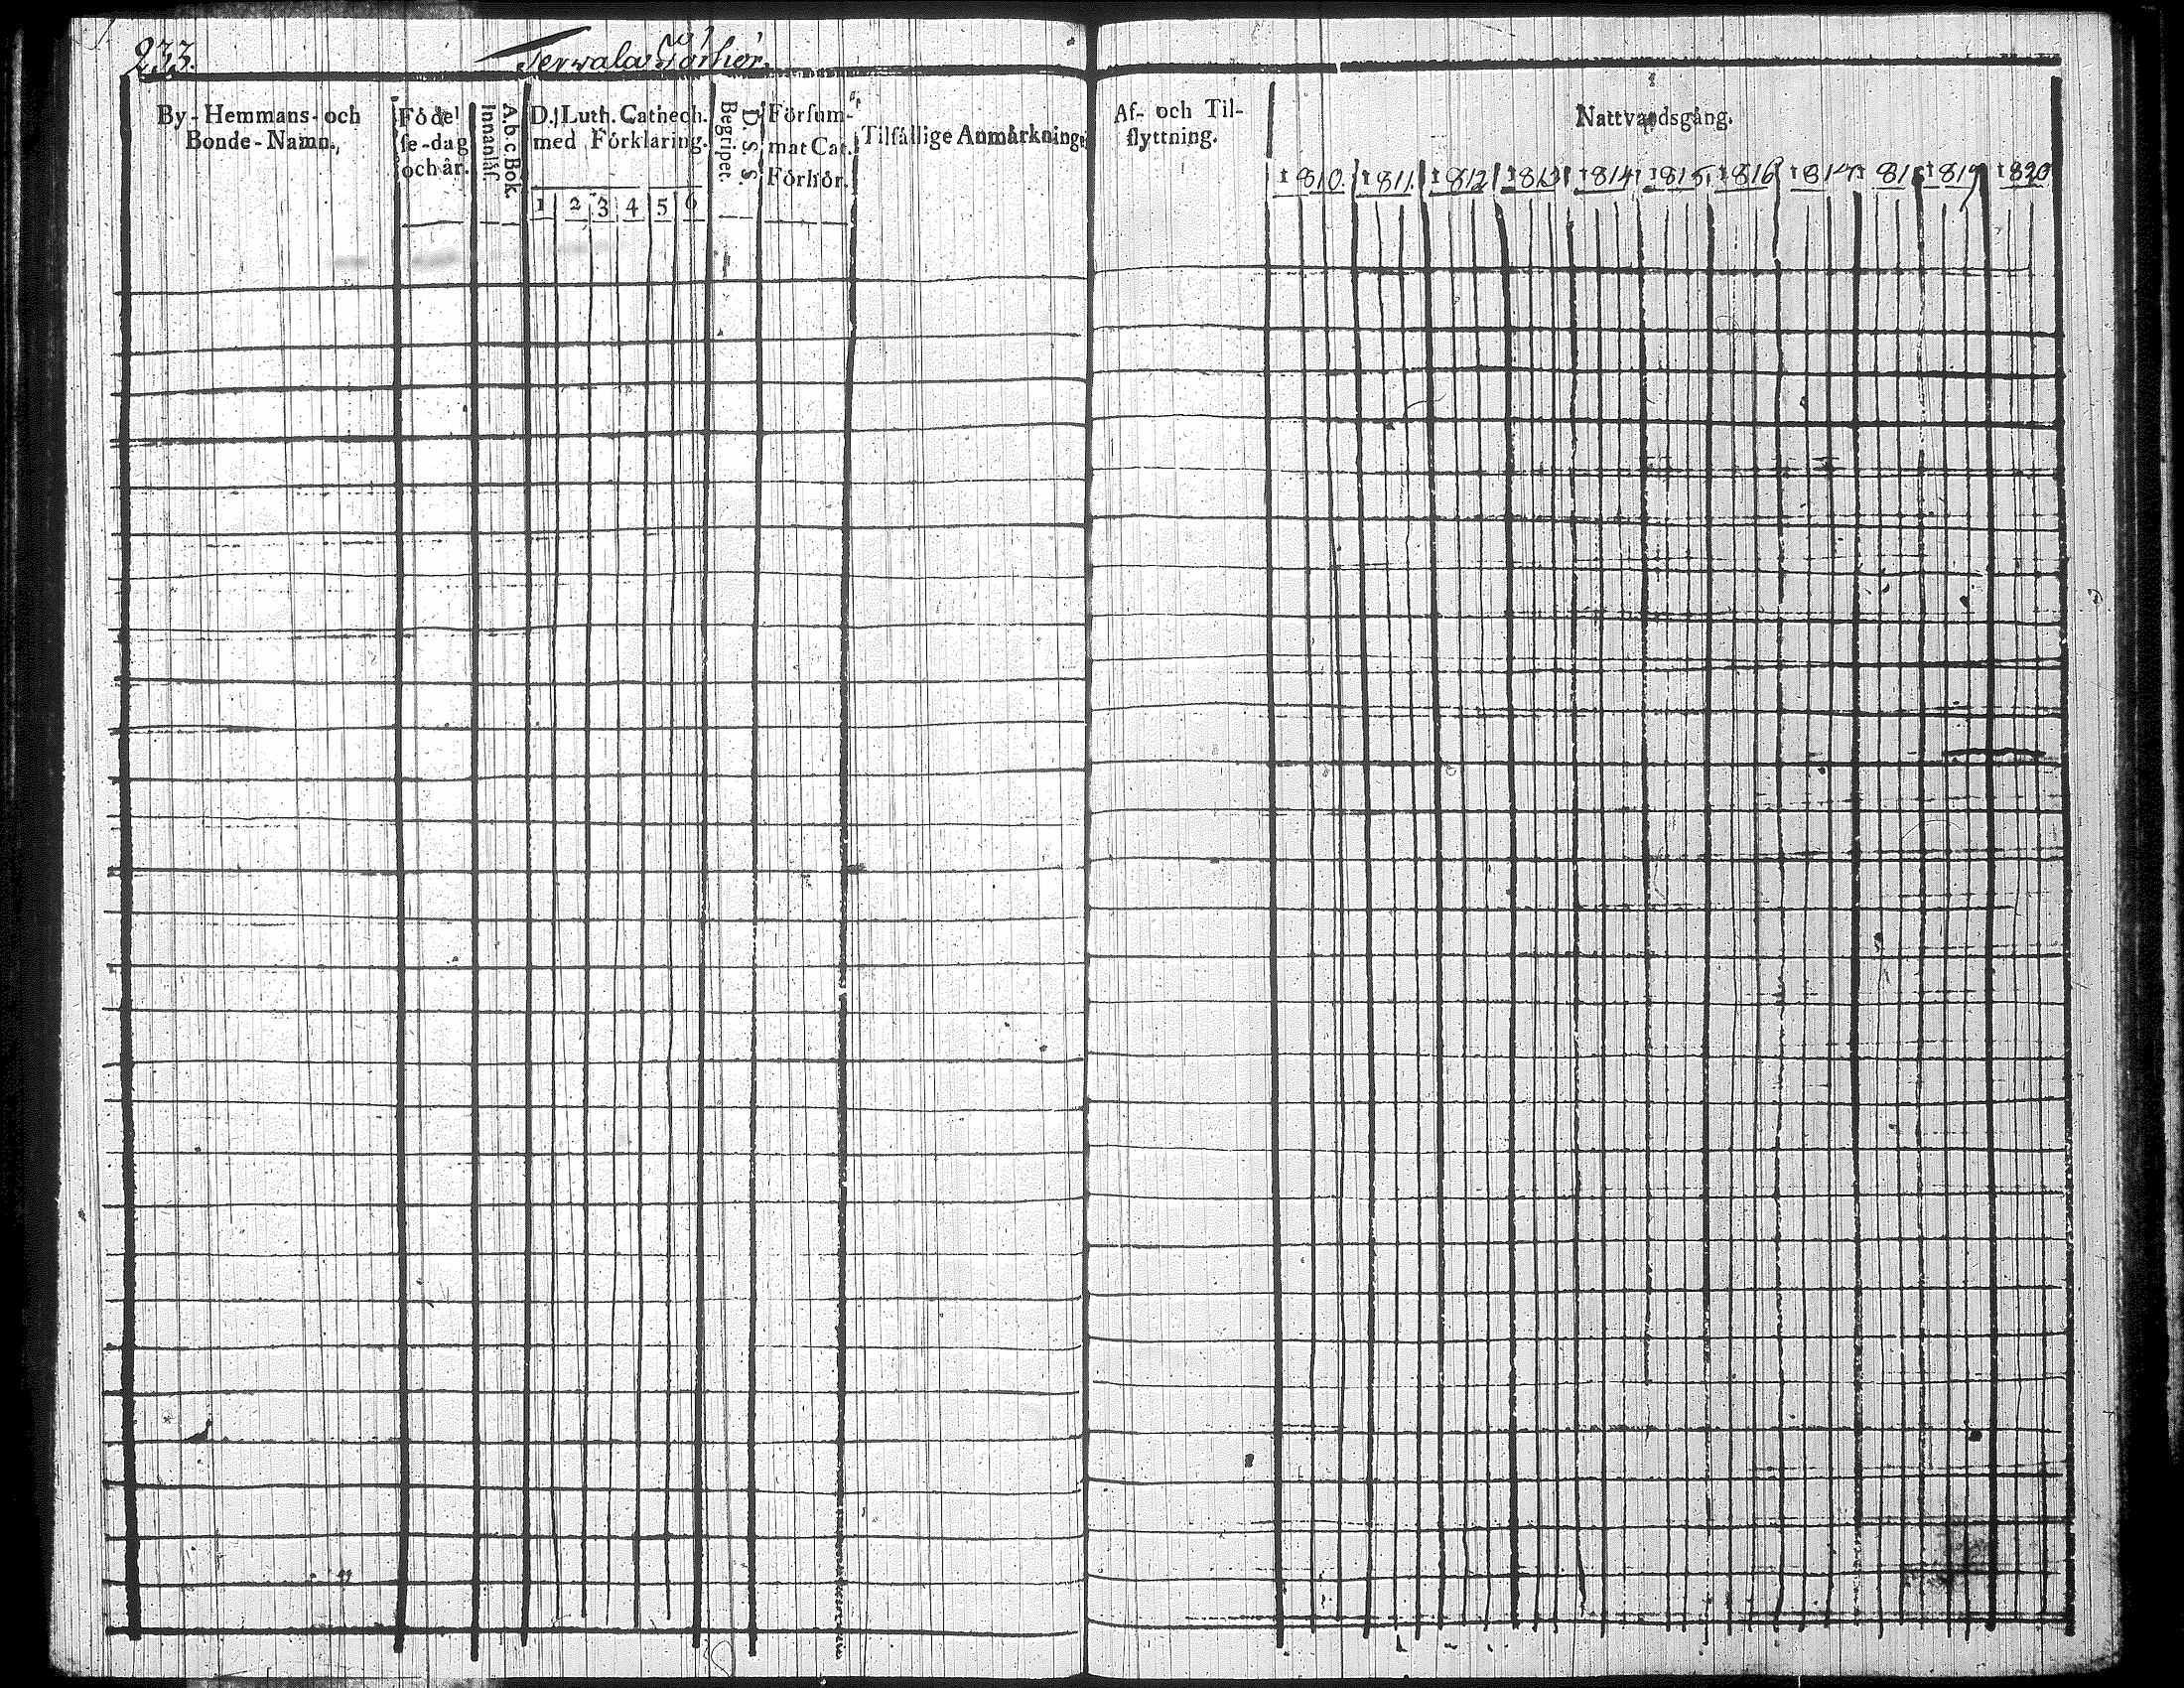 233.
Terwala
By-Hemmans-och
Bonde-Namn.
Födel
se-dag
och år.
A.b.c.Bok.
Innanläs.
D. Luth. Cathech.
med Förklaring.
1 2 3 4 5 6
D. S. S.
Begriper.
Försum-
mat Cat.
Förhör.
Tilfällige Anmärkning
Af- och Til-
flyttning.
Nattvardsgång.
1810. 1811. 1812 1813 1814 1815. 1816 1817 181 1819 1820